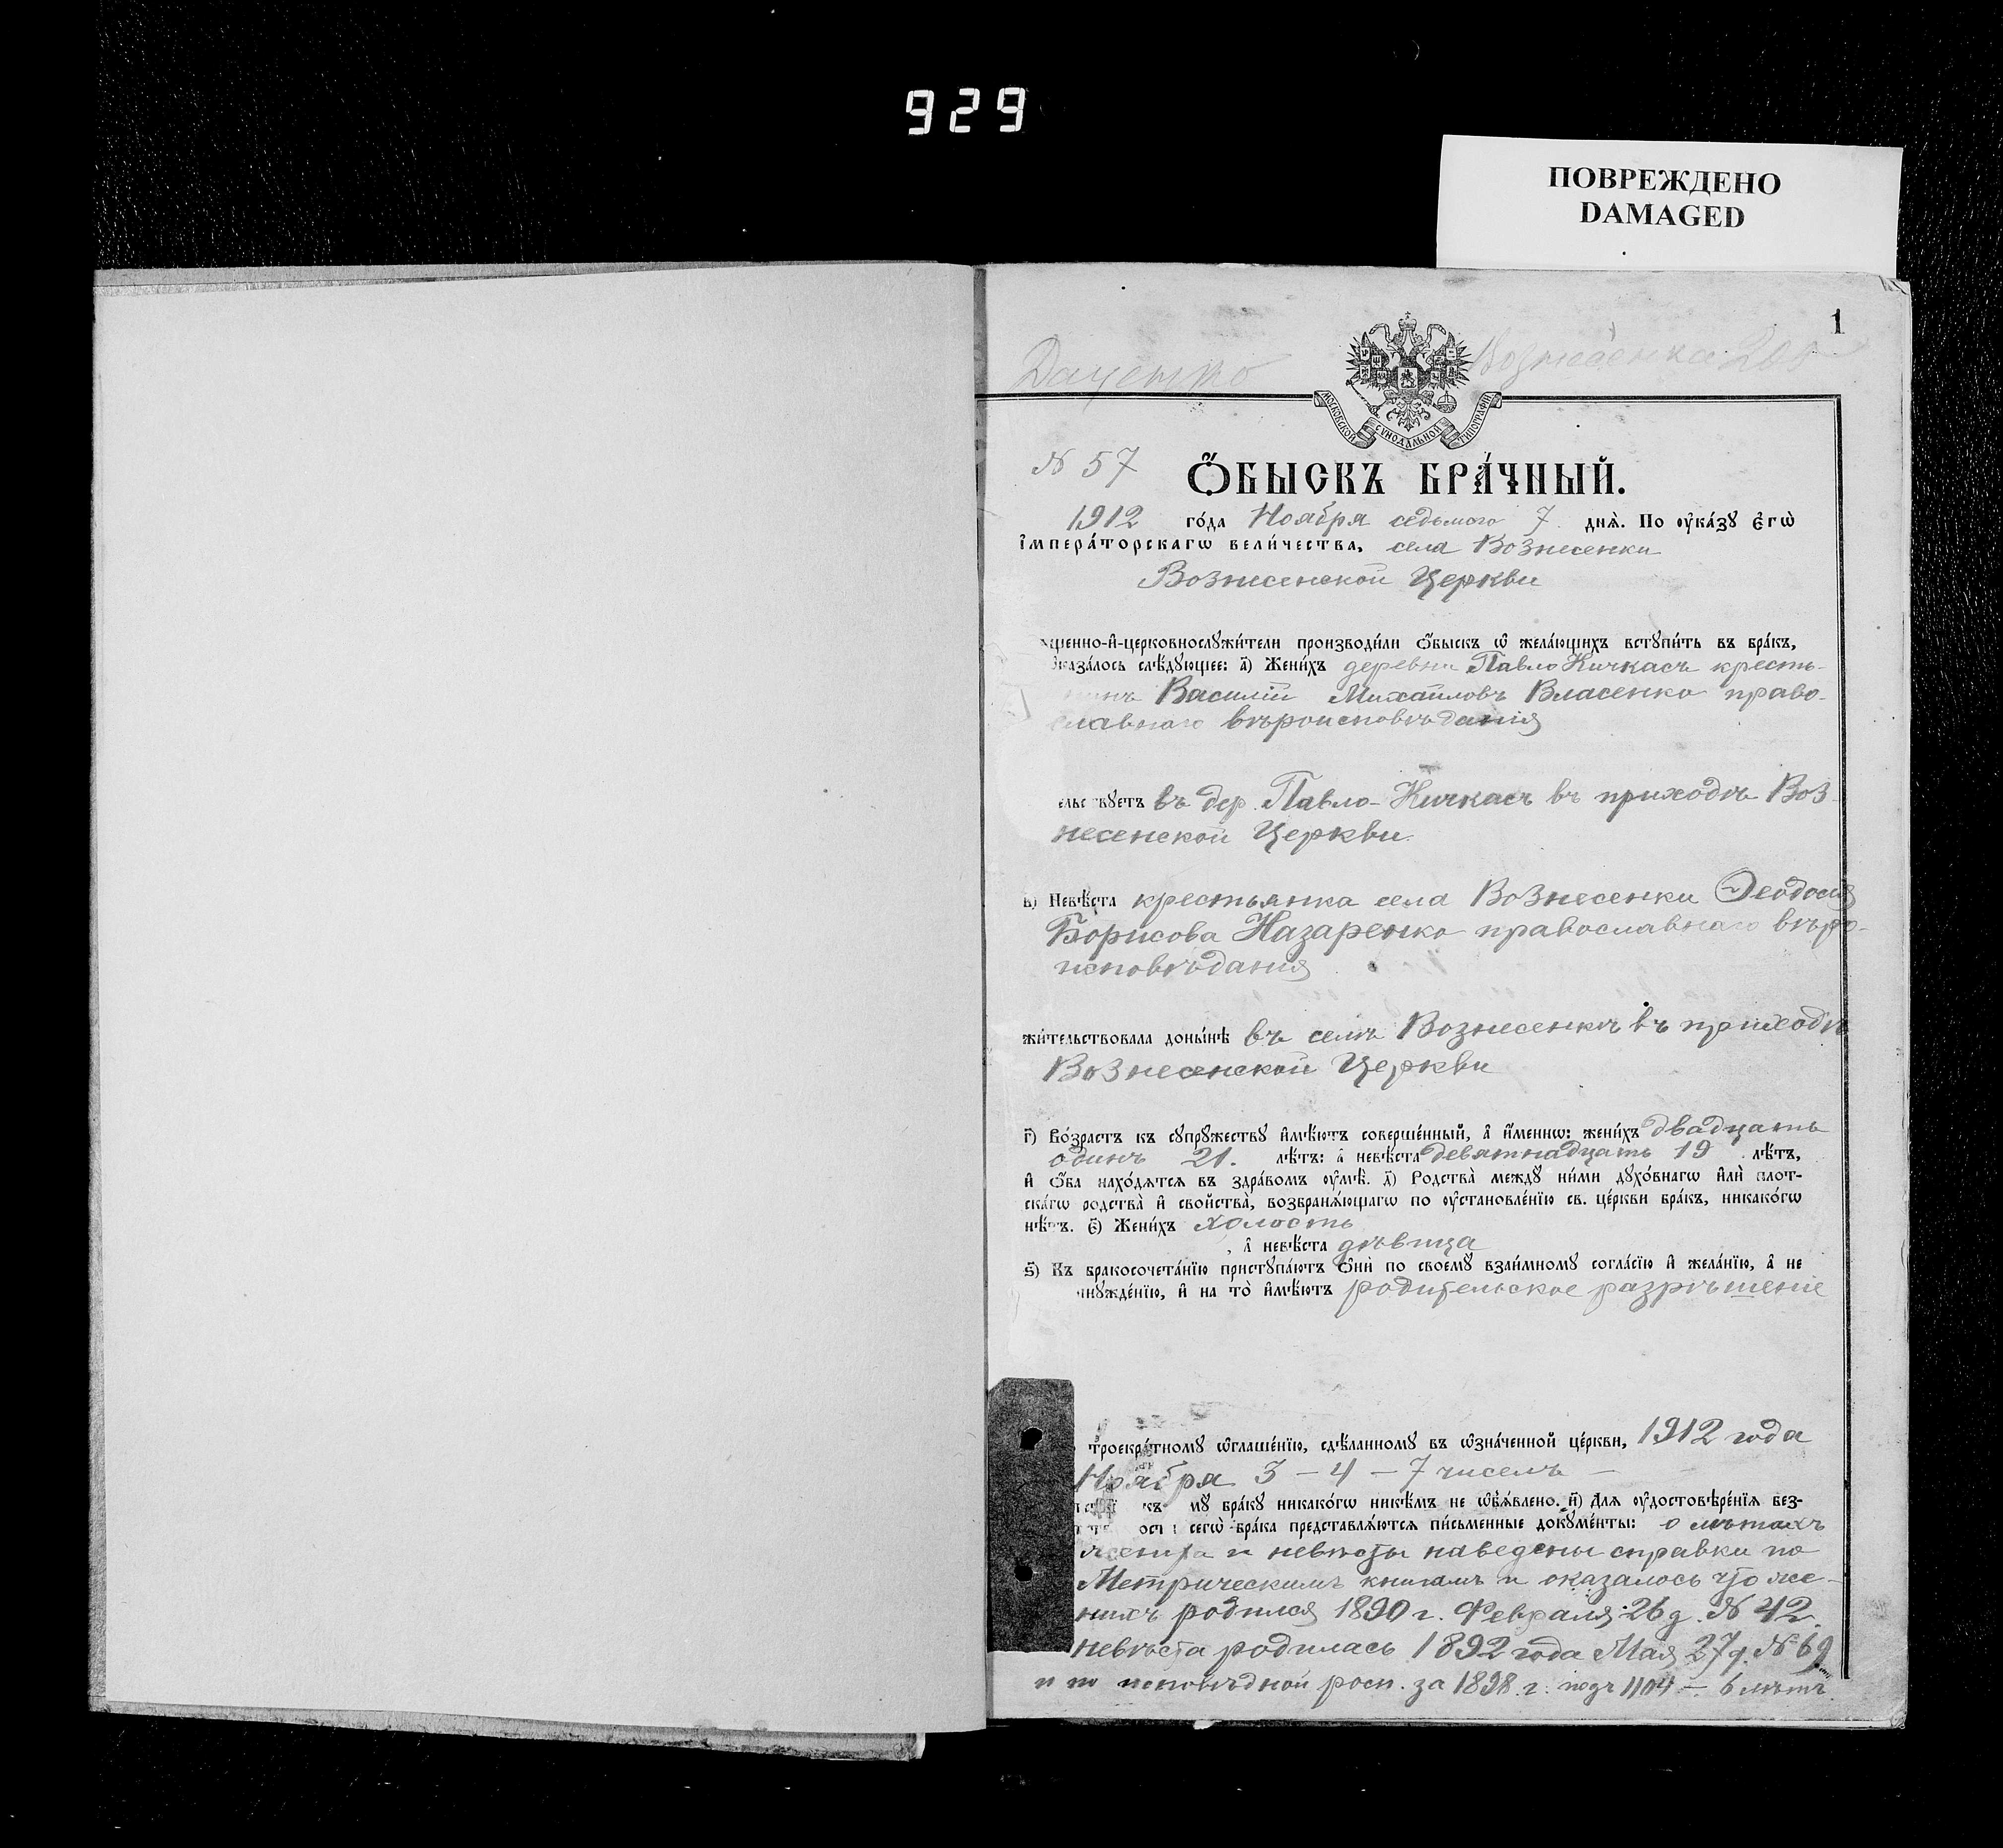 929
ПОВРЕЖДЕНО
DAMAGED
1
Даценко
МОСКОВСКОЙ СѴНОДАЛЬНОЙ ТИПОГРАФІИ
N 57 Ѻ҆БЫСКЪ БРА́ЧНЫЙ.
1912 го́да Ноября седьмого 7 днѧ̀. По ᲂу҆ка́зꙋ є҆гѡ̀
і҆мпера́торскагѡ вели́чества, села Вознесенки
Вознесенской Церкви
щенно-и҆-церковнослꙋжи́тели производи́ли ѻ҆́быскъ ѡ҆ жела́ющихъ встꙋпи́ть въ бра́къ,
ѡказа́лось слѣ́дꙋющее: а҃) Жени́хъ деревни Павло Кичкасъ кресть-
нинъ Василій Михаиловъ Власенко право-
славнаго вѣроисповѣданія
ельствꙋетъ въ дер. Павло-Кичкасъ въ приходѣ Воз-
несенской Церкви.
в҃) Невѣ́ста крестьянка села Вознесенки Ѳеодосія
Борисова Назаренко православнаго вѣро-
исповѣданія
жи́тельствовала доны́нѣ въ селѣ Вознесенкѣ въ приходѣ
Вознесенской Церкви
г҃) Во́зрастъ къ сꙋпрꙋжествꙋ и҆мѣ́ютъ соверше́нный, а҆ и҆́меннѡ: жени́хъ двадцать
одинъ 21. лѣ́тъ: а҆ невѣ́ста девятнадцать 19 лѣ́тъ,
и҆ ѻ҆́ба нахо́дѧтсѧ въ здра́вомъ ᲂу҆мѣ̀. д҃) Родства̀ междꙋ ни́ми дꙋхо́внагѡ и҆лѝ плот-
ска́гѡ родства̀ и҆ сво́йства̀, возбранѧ́ющагѡ по ᲂу҆становле́нїю св. це́ркви бра́къ, никако́гѡ
нѣ́тъ. є҃) Жени́хъ холостъ
, а҆ невѣ́ста дѣвица
ѕ҃) Къ бракосочета́нїю пристꙋпа́ютъ ѻ҆нѝ по своемꙋ̀ взаи́мномꙋ согла́сїю и҆ жела́нїю, а҆ не
инꙋжде́нїю, и҆ на то̀ и҆мѣ́ютъ родительское разрѣшеніе
троекра́тномꙋ ѡ҆глаше́нїю, сдѣ́ланномꙋ въ ѡ҆зна́ченной це́ркви, 1912 года
Ноября 3 – 4 – 7 чиселъ –
къ мꙋ бра́кꙋ никако́гѡ никѣ́мъ не ѡ҆б̾ѧ́влено. и҃) Длѧ ᲂу҆достовѣре́нїѧ без-
ост сегѡ̀ бра́ка представлѧ́ютсѧ пи́сьменные докꙋме́нты: о лѣтахъ
жениха и невѣсты наведены справки по
Метрическимъ книгамъ и оказалось что же-
нихъ родился 1890 г. Февраля 26 д. N 42
невѣста родилась 1892 года Мая 27 д. № 69
и по исповѣдной росп. за 1898 г. подъ 1104 – 6 лѣтъ